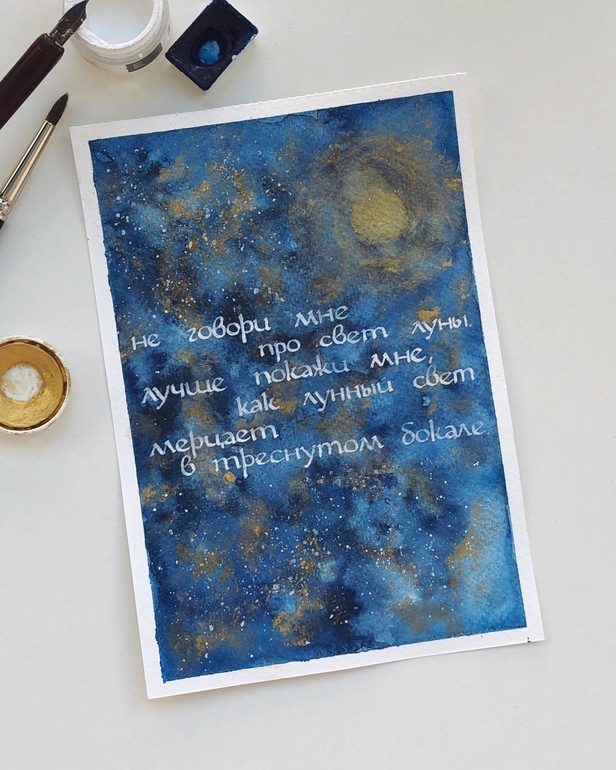 не говори мне
про свет луны.
лучше покажи мне,
как лунный свет
мерцает
в треснутом бокале.